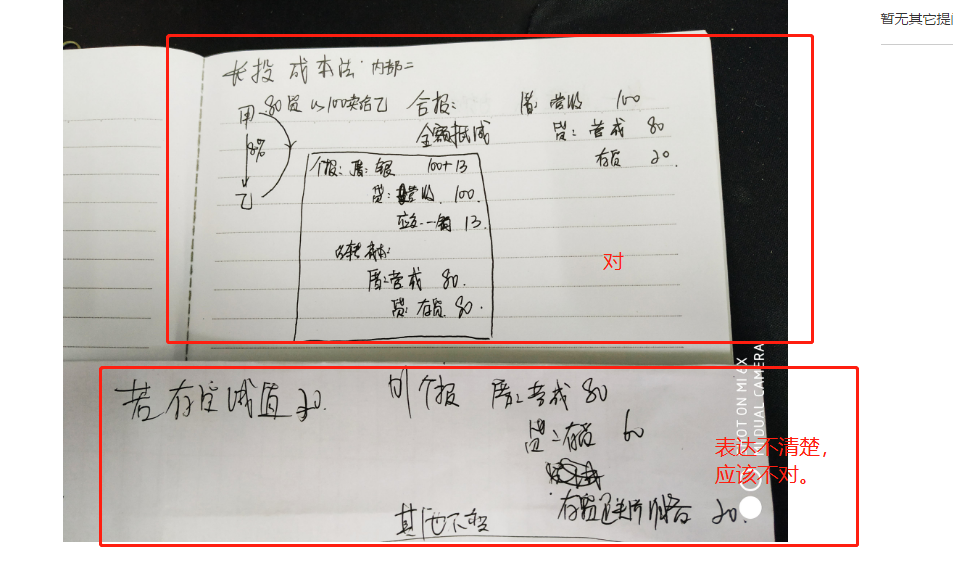 暂无其它提
长投 成本法 内部=
甲 80货 以100卖给乙 合报: 借: 营收 100
全额抵减 贷: 营成 80
80% 存货 20.
乙
个报: 借: 银 100+13
贷: 营收. 100.
应交-销 13.
结转成本:
借: 营成 80.
贷: 存货. 80.
对
若存货减值20. 则个报 借: 营成 80
贷: 存货 60
存货跌价准备 20.
其他不变
表达不清楚,
应该不对。
SHOT ON MI 6X
MI DUAL CAMERA